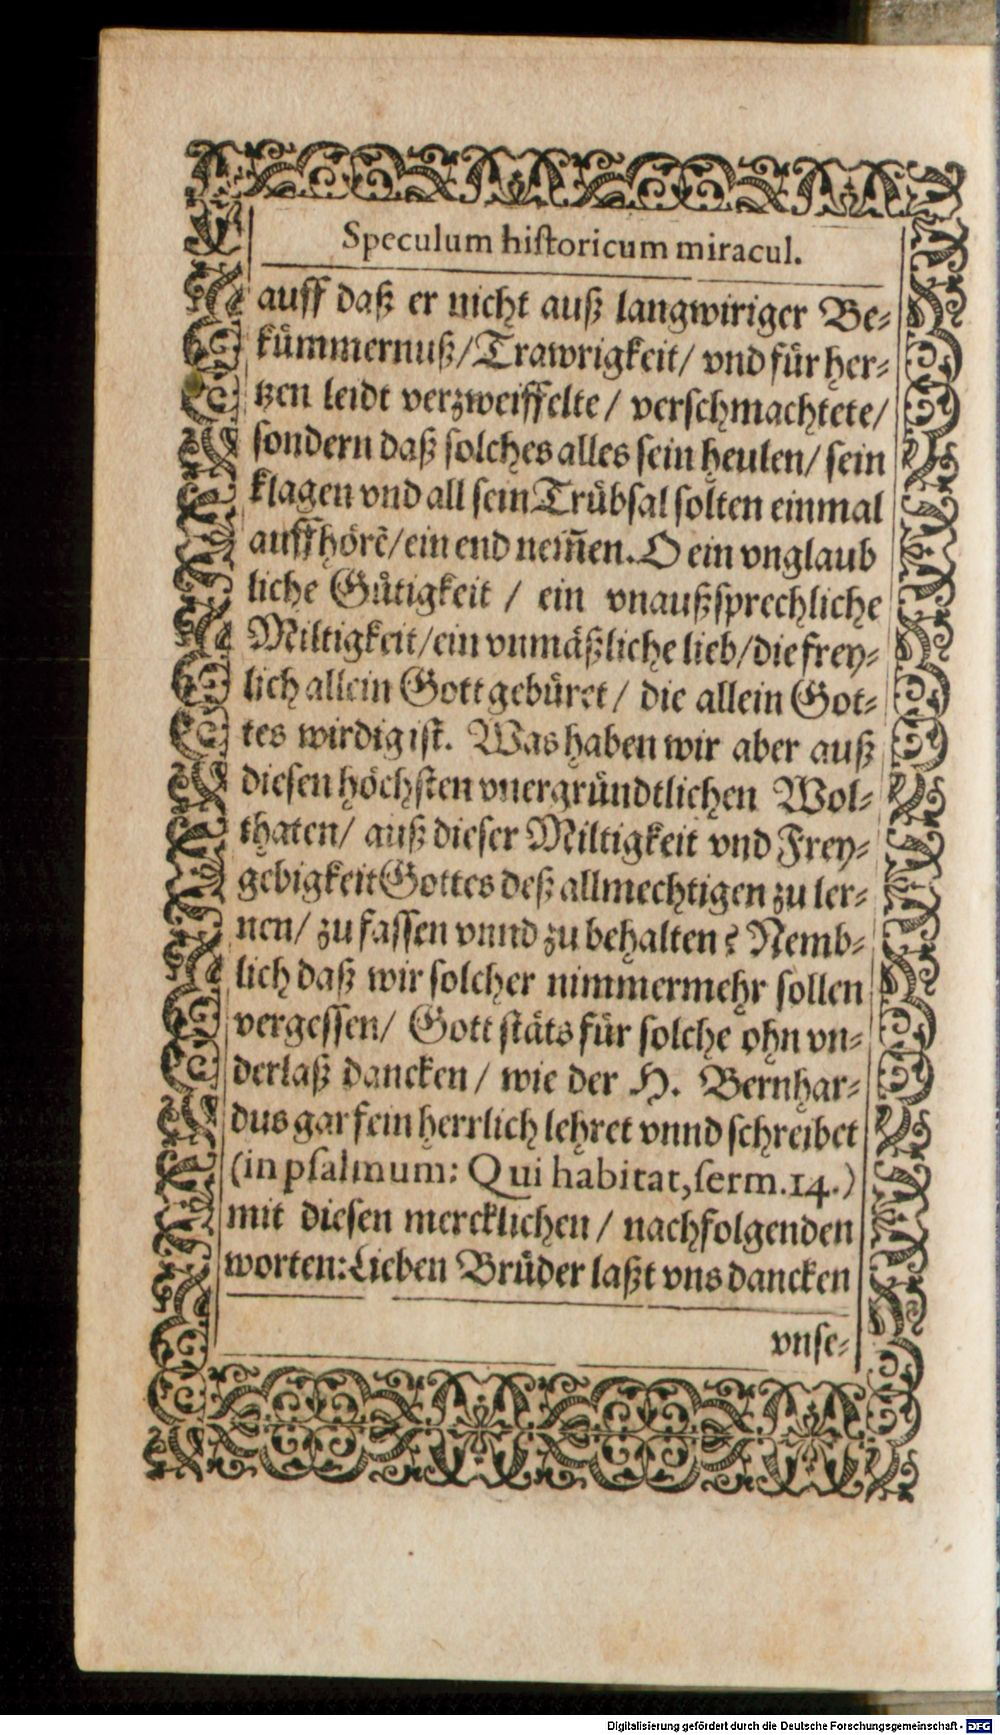 Speculum historicum miracul.
auff daß er nicht auß langwiriger Be-
kümmernuß/Trawrigkeit/ vnd für her-
tzen leidt verzweiffelte/ verschmachtete/
sondern daß solches alles sein heulen/ sein
klagen vnd all sein Trübsal solten einmal
auffhörẽ/ein end nem̃en. O ein vnglaub
liche Gütigkeit / ein vnaußsprechliche
Miltigkeit/ein vnmäßliche lieb/die frey-
lich allein Gott gebüret/ die allein Got-
tes wirdig ist. Was haben wir aber auß
diesen höchsten vnergründtlichen Wol-
thaten/ auß dieser Miltigkeit vnd Frey-
gebigkeit Gottes deß allmechtigen zu ler-
nen/ zu fassen vnnd zu behalten? Nemb-
lich daß wir solcher nimmermehr sollen
vergessen/ Gott stäts für solche ohn vn-
derlaß dancken/ wie der H. Bernhar-
dus gar fein herrlich lehret vnnd schreibet
(in psalmum: Qui habitat, serm. 14.)
mit diesen mercklichen/ nachfolgenden
worten: Lieben Brüder laßt vns dancken
vnse-
Digitalisierung gefördert durch die Deutsche Forschungsgemeinschaft - DFG